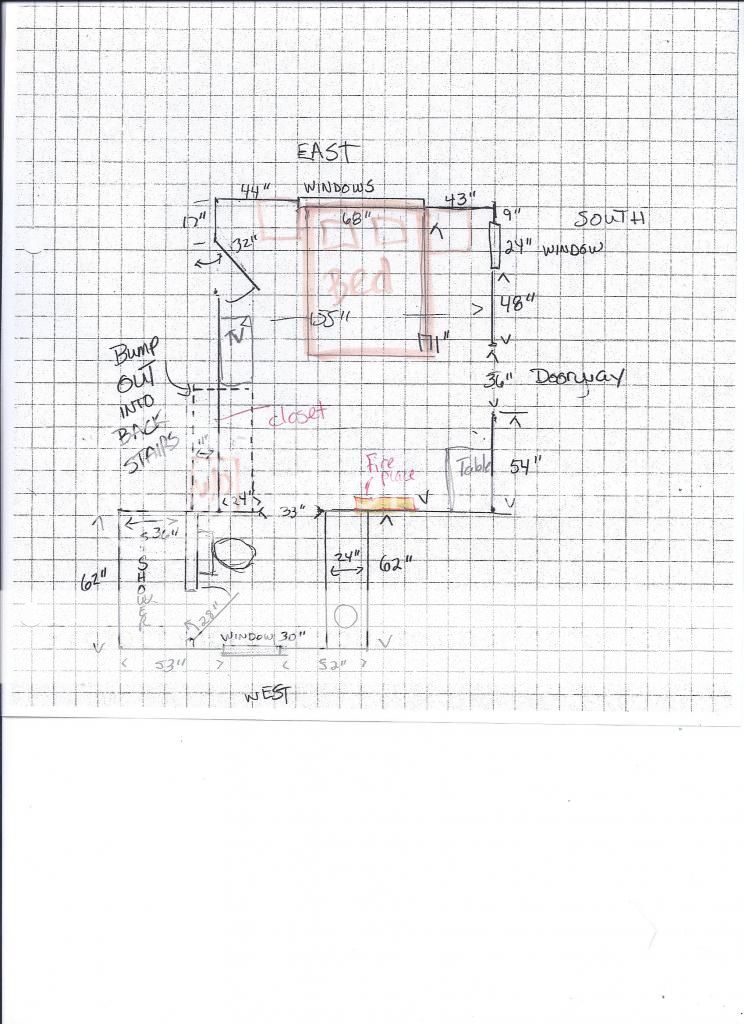 EAST
WINDOWS
44"
43"
68"
17"
9"
SOUTH
32"
24" WINDOW
Bed
48"
TV
155"
171"
BUMP
OUT
INTO
BACK
STAIRS
36" Doorway
closet
Fire
place
Table
54"
24"
33"
36"
62"
SHOWER
24"
62"
28"
WINDOW 30"
53"
52"
WEST